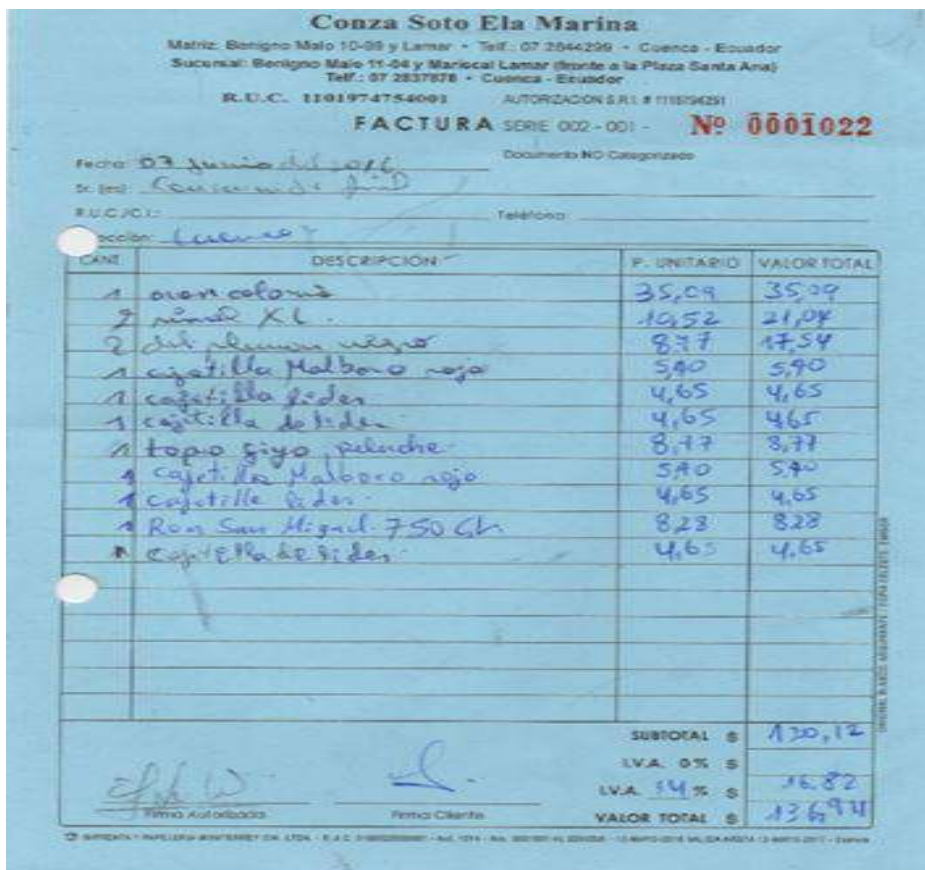 Conza Soto Ela Marina
Matriz: Benigno Malo 10-99 y Lamar • Telf.: 07 2844299 • Cuenca - Ecuador
Sucursal: Benigno Malo 11-04 y Mariscal Lamar (frente a la Plaza Santa Ana)
Telf.: 07 2837878 • Cuenca - Ecuador
R.U.C. 1101974754001 AUTORIZACION S.R.I. #
FACTURA SERIE 002 - 001 - Nº 0001022
Documento NO Categorizado
Fecha: 07 Junio del 2016
Sr. (es): Consumidor final
R.U.C./C.I.: Teléfono:
Cuenca
CANT. DESCRIPCIÓN P. UNITARIO VALOR TOTAL
1 35,09 35,09
2 XL. 10,52 21,04
2 negro 8,77 17,54
1 cajetilla Malboro rojo 5,40 5,40
1 cajetilla lider 4,65 4,65
1 cajetilla de lider 4,65 4,65
1 topo giyo peluche 8,77 8,77
1 cajetilla Malboro rojo 5,40 5,40
1 cajetilla lider. 4,65 4,65
1 Ron San Miguel 750 8,28 8,28
1 cajetilla de lider 4,65 4,65
SUBTOTAL $ 120,12
I.V.A. 0% $
I.V.A. 14 % $ 16.82
Firma Autorizada Firma Cliente VALOR TOTAL $ 136,94